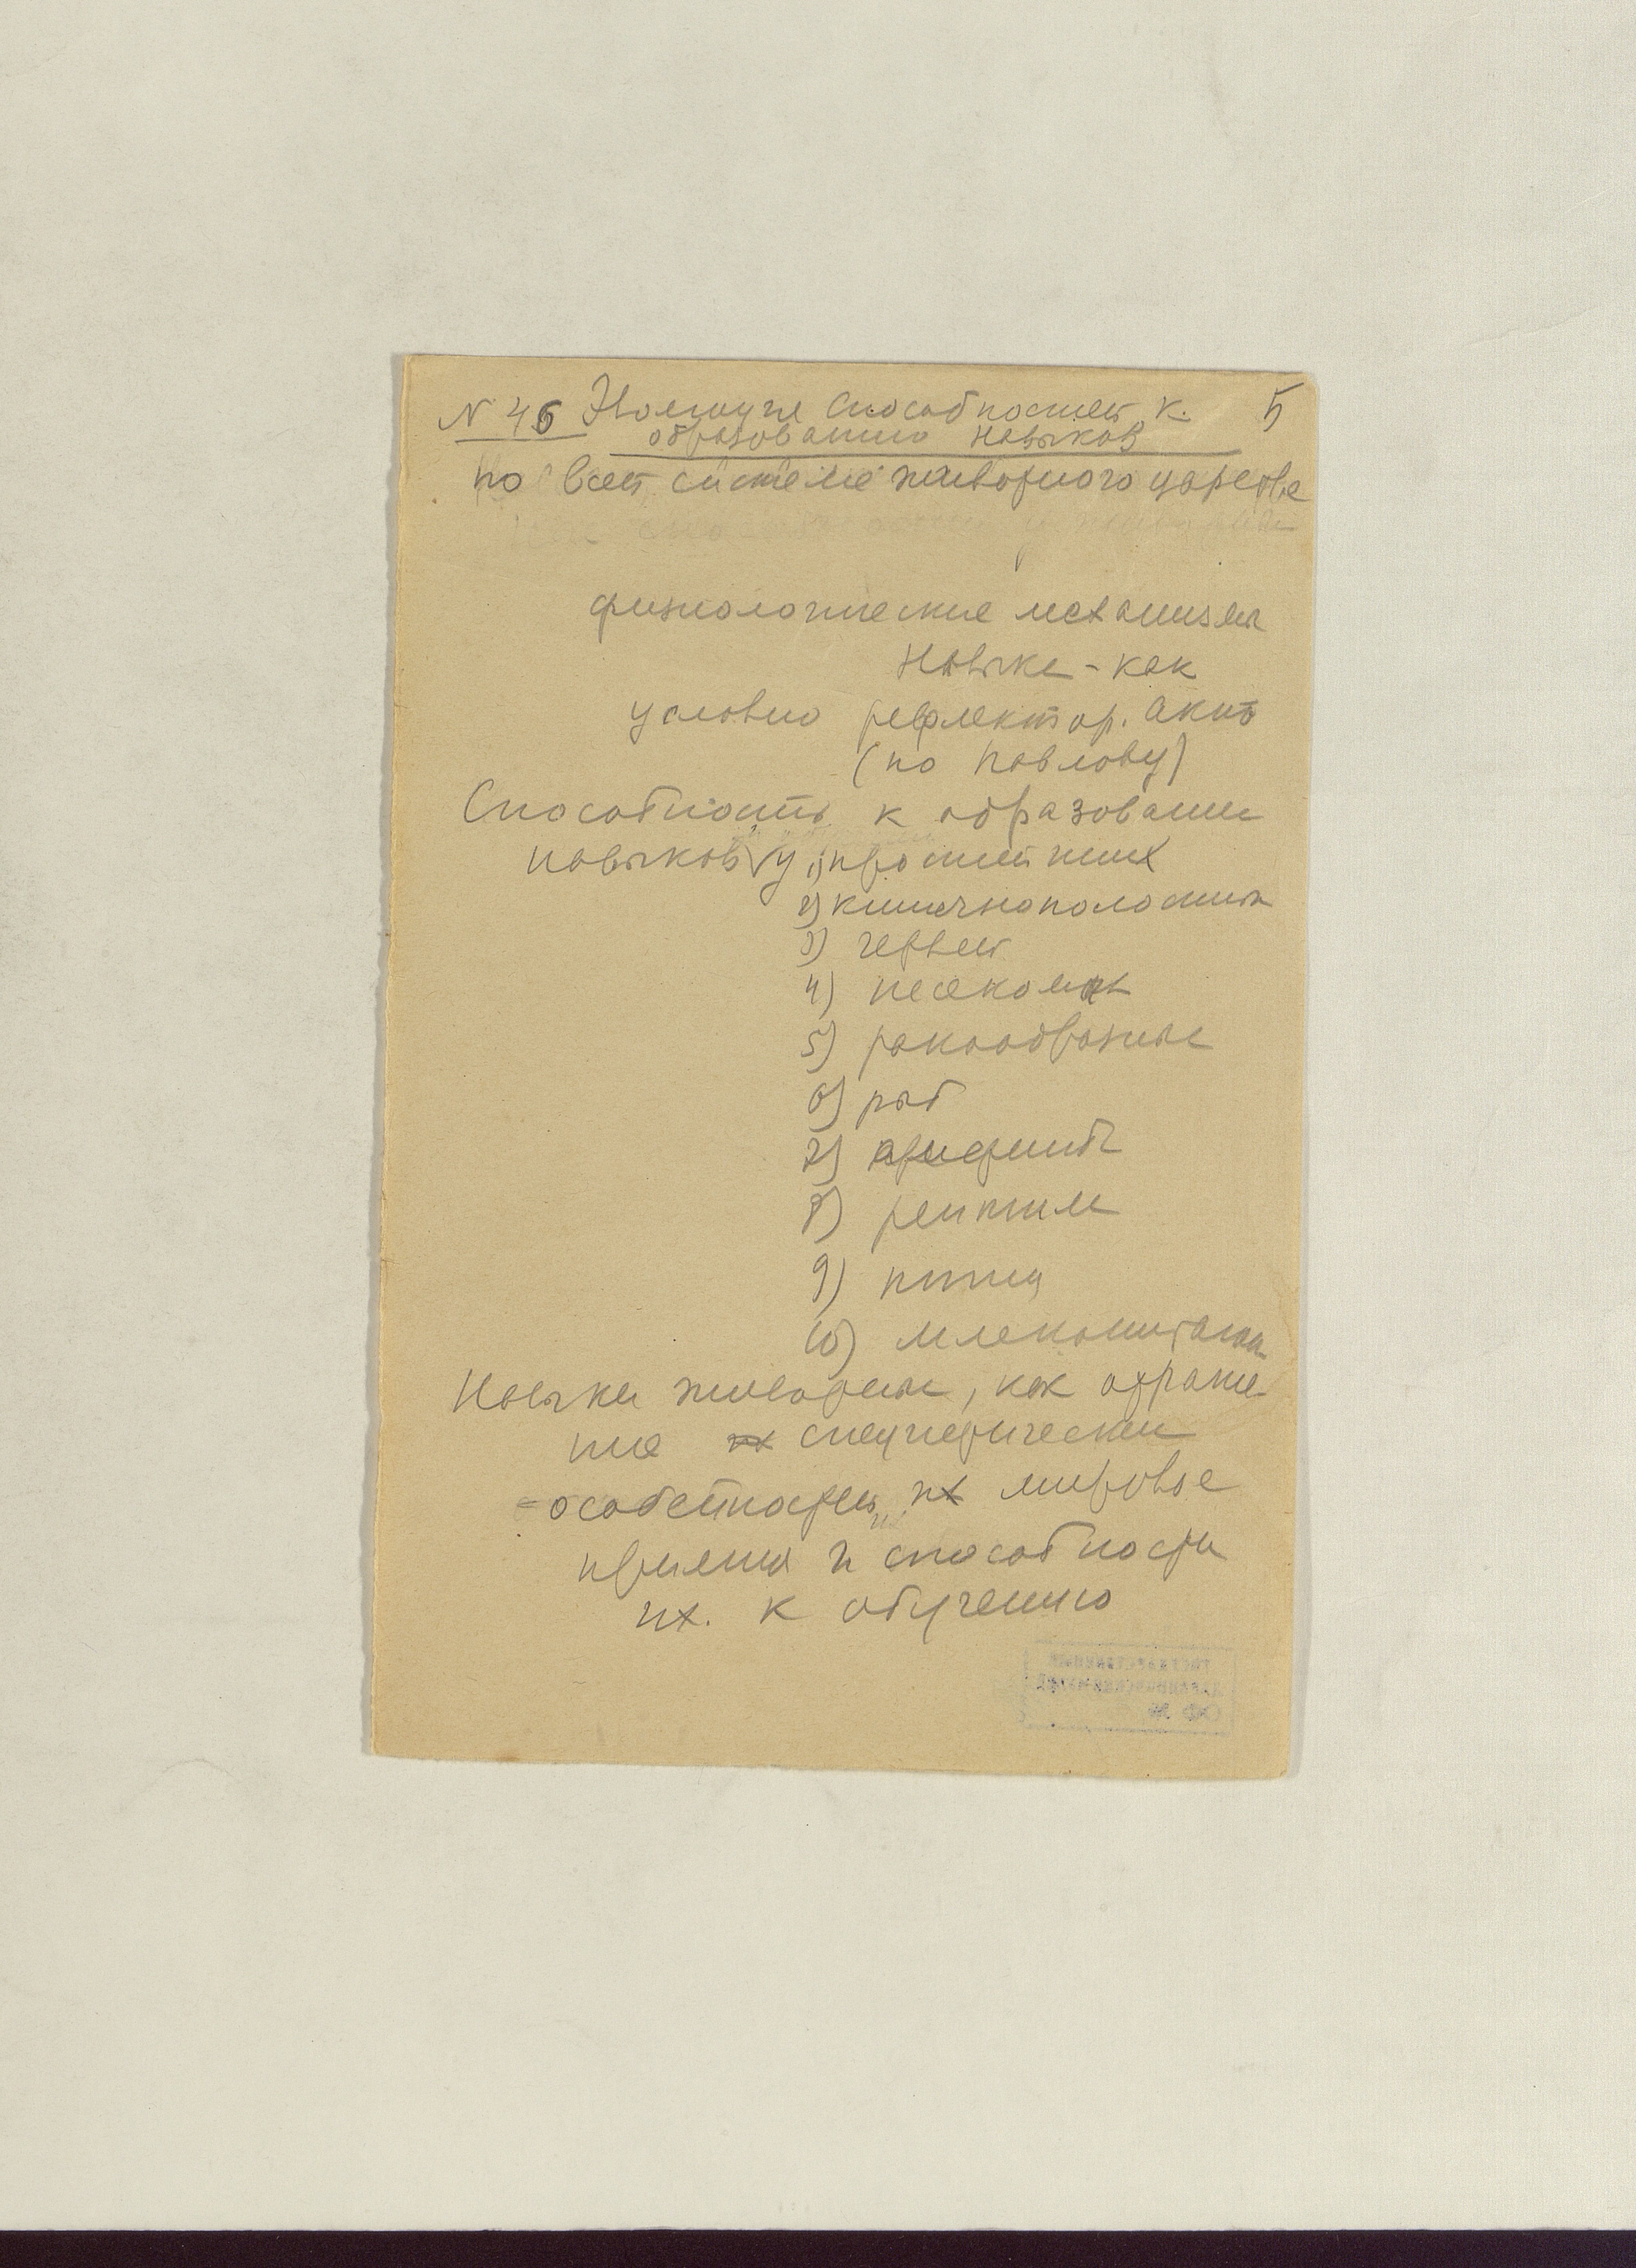 N 46 Эволюция способностей к 5
образованию навыков
по всей системе животного царства
физиологические механизмы
Навыка - как
условно рефлектор. акта
(по Павлову)
Способность к образованию
навыков у 1) простейших
2) кишечнополостных
3) червей
4) насекомых
5) ракообразные
6) рыб
7) амфибий
8) рептилий
9) птиц
10) млекопитающ
Навыки животных, как отраже-
ние специфических
особенностей их мировос
приятия и способности
их к обучению